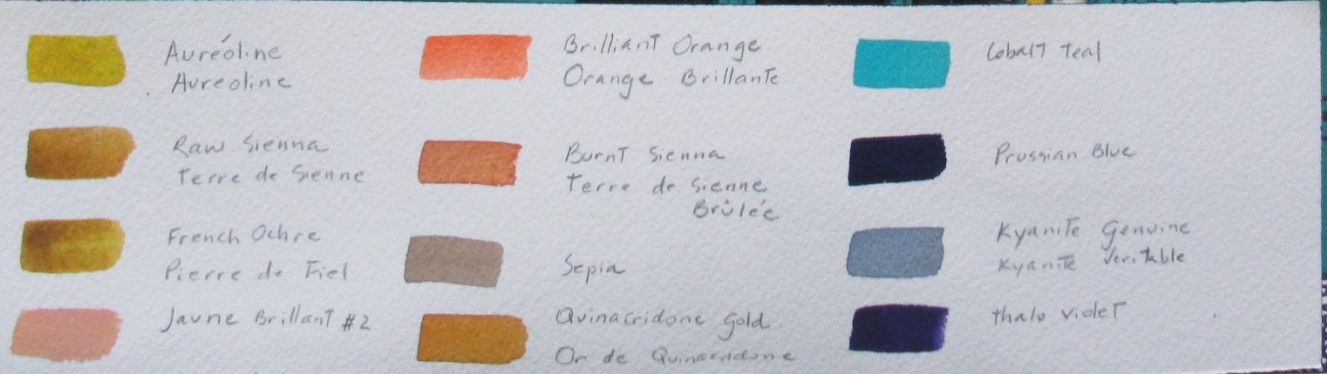 Auréoline
Aureoline
Raw Sienna
Terre de Sienne
French Ochre
Pierre de Fiel
Jaune Brillant #2
Brilliant Orange
Orange Brillante
Burnt Sienna
Terre de Sienne
Brûlée
Sepia
Quinacridone Gold
Or de Quinacridone
Cobalt Teal
Prussian Blue
Kyanite Genuine
Kyanite Veritable
thalo violet